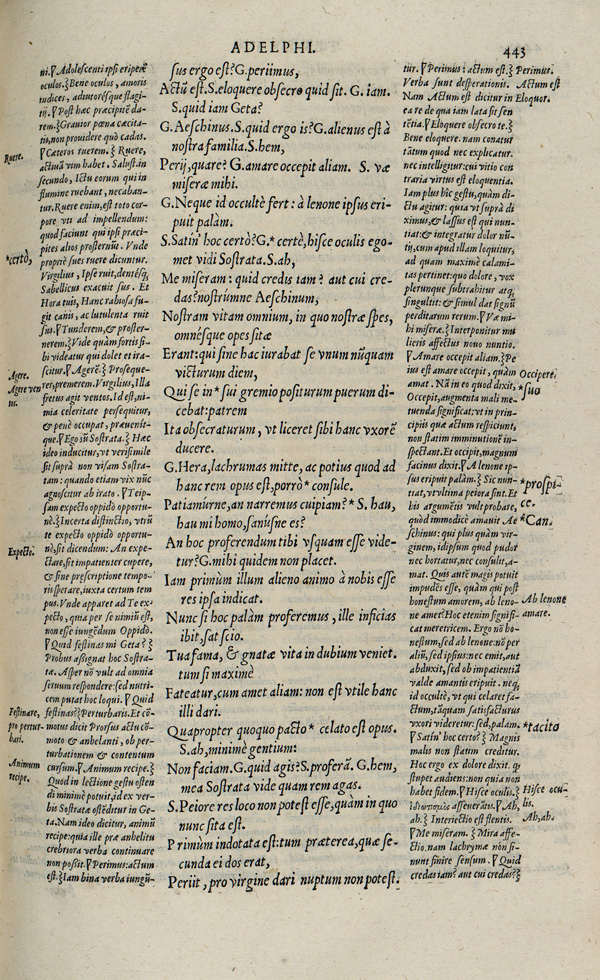 ADELPHI.
443
ni.¶Adolescenti ipsi eriperē
oculos.⁅Bene oculos, amoris
indices, adiutoresque flagi-
tij.¶Post hac præcipitē da-
rem.⁅Grauior pœna cæcita-
tis, non prouidere quò cadas.
¶Cæteros ruerem.⁅Ruere,
actiuā vim habet. Salust.in
secundo, Ictu eorum qui in
flumine ruebant, necaban-
tur. Ruere enim, est toto cor-
pore vti ad impellendum:
quod faciunt qui ipsi præci-
pites alios prosternūt. Vnde
propriè sues ruere dicuntur.
Virgilius, Ipse ruit, dentésq;
Sabellicus exacuit sus. Et
Horatius, Hac rabiosa fu-
git canis, ac lutulenta ruit
sus.¶Tunderem, & proster-
nerem.⁅Vide quàm fortis si-
bi videatur qui dolet et ira-
scitur.¶Agerē.⁅Proseque-
rer, premerem. Virgilius, Illa
fretus agit ventos. Id est, ni-
mia celeritate persequitur,
& penè occupat, præuenit-
que.¶Ego iū Sostrata.⁅Hæc
ideo inducitur, vt verisimile
sit suprà non visam Sostra-
tam: quando etiam vix nūc
agnoscitur ab irato.¶Te ip-
sam expecto oppidò opportu-
nè.⁅Incerta distinctio, vtrū
te expecto oppidò opportu-
nè, sit dicendum: An expe-
ctare, sit impatienter cupere,
& sine præscriptione tempo-
ris sperare, iuxta certum tem
pus. Vnde apparet ad Te ex-
pecto, quia per se nimiū est,
non esse iungēdum Oppidò.
¶Quid festinas mi Geta?⁅
Probus assignat hoc Sostra-
tæ. Asper nō vult ad omnia
seruum respondere: sed nutri-
cem putat hoc loqui.¶Quid
festinas?⁅Perturbaris. Et cō-
motus dicit Prorsus actu cō-
moto & anhelanti, ob per-
turbationem & contentum
cursum.¶Animum recipe.⁅
Quod in lectione gestu osten
di minimè potuit, id ex ver-
bis Sostratæ osteditur in Ge-
ta. Nam ideo dicitur, animū
recipe: quia ille præ anhelitu
crebriora verba continuare
non possit.¶Perimus: actum
est.⁅Iam bina verba iungū-
Ruere.
*certò,
Agere.
Agere ven
tus.
Expecto.
Festinare,
pro pertur-
bari.
Animum
recipe.
sus ergo est? G. periimus,
Actū est. S. eloquere obsecro quid sit. G. iam.
S. quid iam Geta?
G. Aeschinus. S. quid ergo is? G. alienus est à
nostra familia. S. hem,
Perij, quare? G. amare occepit aliam. S. væ
miseræ mihi.
G. Neque id occultè fert: à lenone ipsus eri-
puit palàm.
S. Satin' hoc certò? G.* certè, hisce oculis ego-
met vidi Sostrata. S. ah,
Me miseram: quid credis iam? aut cui cre-
das? nostrúmne Aeschinum,
Nostram vitam omnium, in quo nostræ spes,
omnésque opes sitæ
Erant: qui sine hac iurabat se vnum nūquam
victurum diem,
Qui se in* sui gremio positurum puerum di-
cebat: patrem
Ita obsecraturum, vt liceret sibi hanc vxorē
ducere.
G. Hera, lachrumas mitte, ac potius quod ad
hanc rem opus est, porrò* consule.
Patiamúrne, an narremus cuipiam?* S. hau,
hau mi homo, sanúsne es?
An hoc proferendum tibi vsquam esse vide-
tur? G. mihi quidem non placet.
Iam primùm illum alieno animo à nobis esse
res ipsa indicat.
Nunc si hoc palàm proferemus, ille inficias
ibit, sat scio.
Tua fama, & gnatæ vita in dubium veniet.
tum si maximè
Fateatur, cum amet aliam: non est vtile hanc
illi dari.
Quapropter quoquo pacto* celato est opus.
S. ah, minimè gentium:
Non faciam. G. quid agis? S. proferā. G. hem,
mea Sostrata vide quam rem agas.
S. Peiore res loco non potest esse, quàm in quo
nunc sita est.
Primùm indotata est: tum præterea, quæ se-
cunda ei dos erat,
Periit, pro virgine dari nuptum non potest.
tur.¶Perimus: actum est.⁅
Verba sunt desperationis.
Nam Actum est dicitur in
ea re de qua iam lata sit sen
tētia.¶Eloquere obsecro te.⁅
Bene eloquere. nam conatur
tātum quod nec explicatur.
nec intelligitur: cui vitio con
traria virtus est eloquentia.
Iam plus hîc gestu, quàm di-
ctu agitur: quia vt suprà di
ximus, & lassus est qui nun-
tiat: & integratur dolor nū-
tij, cum apud illam loquitur,
ad quam maximè calami-
tas pertinet: quo dolore, vox
plerunque subtrahitur atq;
singultit: & simul dat signū
perditarum rerum.¶Væ mi-
hi miseræ.⁅Interponitur mu
lieris affectus nouo nuntio.
¶Amare occepit aliam.⁅Pe
ius est amare occepit, quàm
amat. Nā in eo quod dixit,
Occepit, augmenta mali me-
tuenda significat: vt in prin-
cipiis quæ actum respiciunt,
non statim imminutionē in-
spectant. Et occepit, magnum
facinus dixit.¶A lenone ip-
sus eripuit palàm.⁅Sic nun-
tiat, vt vltima peiora sint. Et
his argumētis vult probare,
quod immodicè amauit Ae
schinus: qui plus quàm vir-
ginem, id ipsum quod pudor
nec hortatur, nec consulit, a-
mat. Quis autē magis potuit
impudēs esse, quàm qui post
honestum amorem, ab leno-
ne amet? Hoc etenim signifi-
cat meretricem. Ergo nō ho-
nestum, sed ab lenone: nō per
aliū, sed ipsius: nec emit, aut
abduxit, sed ob impatientiā
valde amantis eripuit. neq,
id occultè, vt qui celaret fa-
ctum, tāquam satisfacturus
vxori videretur: sed, palàm.
¶Satin' hoc certò?⁅Magnis
malis non statim creditur.
Hoc ergo ex dolore dixit. q
stupet audiens: non quia non
habet fidem.¶Hisce oculis.⁅
ἰδιωτισμὸς asseuerātis.¶Ah,
ah.⁅Interiectio est flentis.
¶Me miseram.⁅Mira affe-
ctio. nam lachrymæ non si-
nunt finire sensum.¶Quid
credas iam? aut cui credas?⁅
Perimus.
Actum est
Eloquor.
Occipere.
*suo
*prospi-
ce.
*Can.
Ab lenone
amare.
*tacito
Hisce ocu-
lis.
Ah, ah.